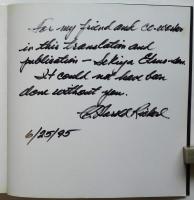 For my friend and co-worker
in this translation and
publication — Sekiya Etsuo-san.
It could not have been
done without you.
C. Harold Rickel
6/25/95